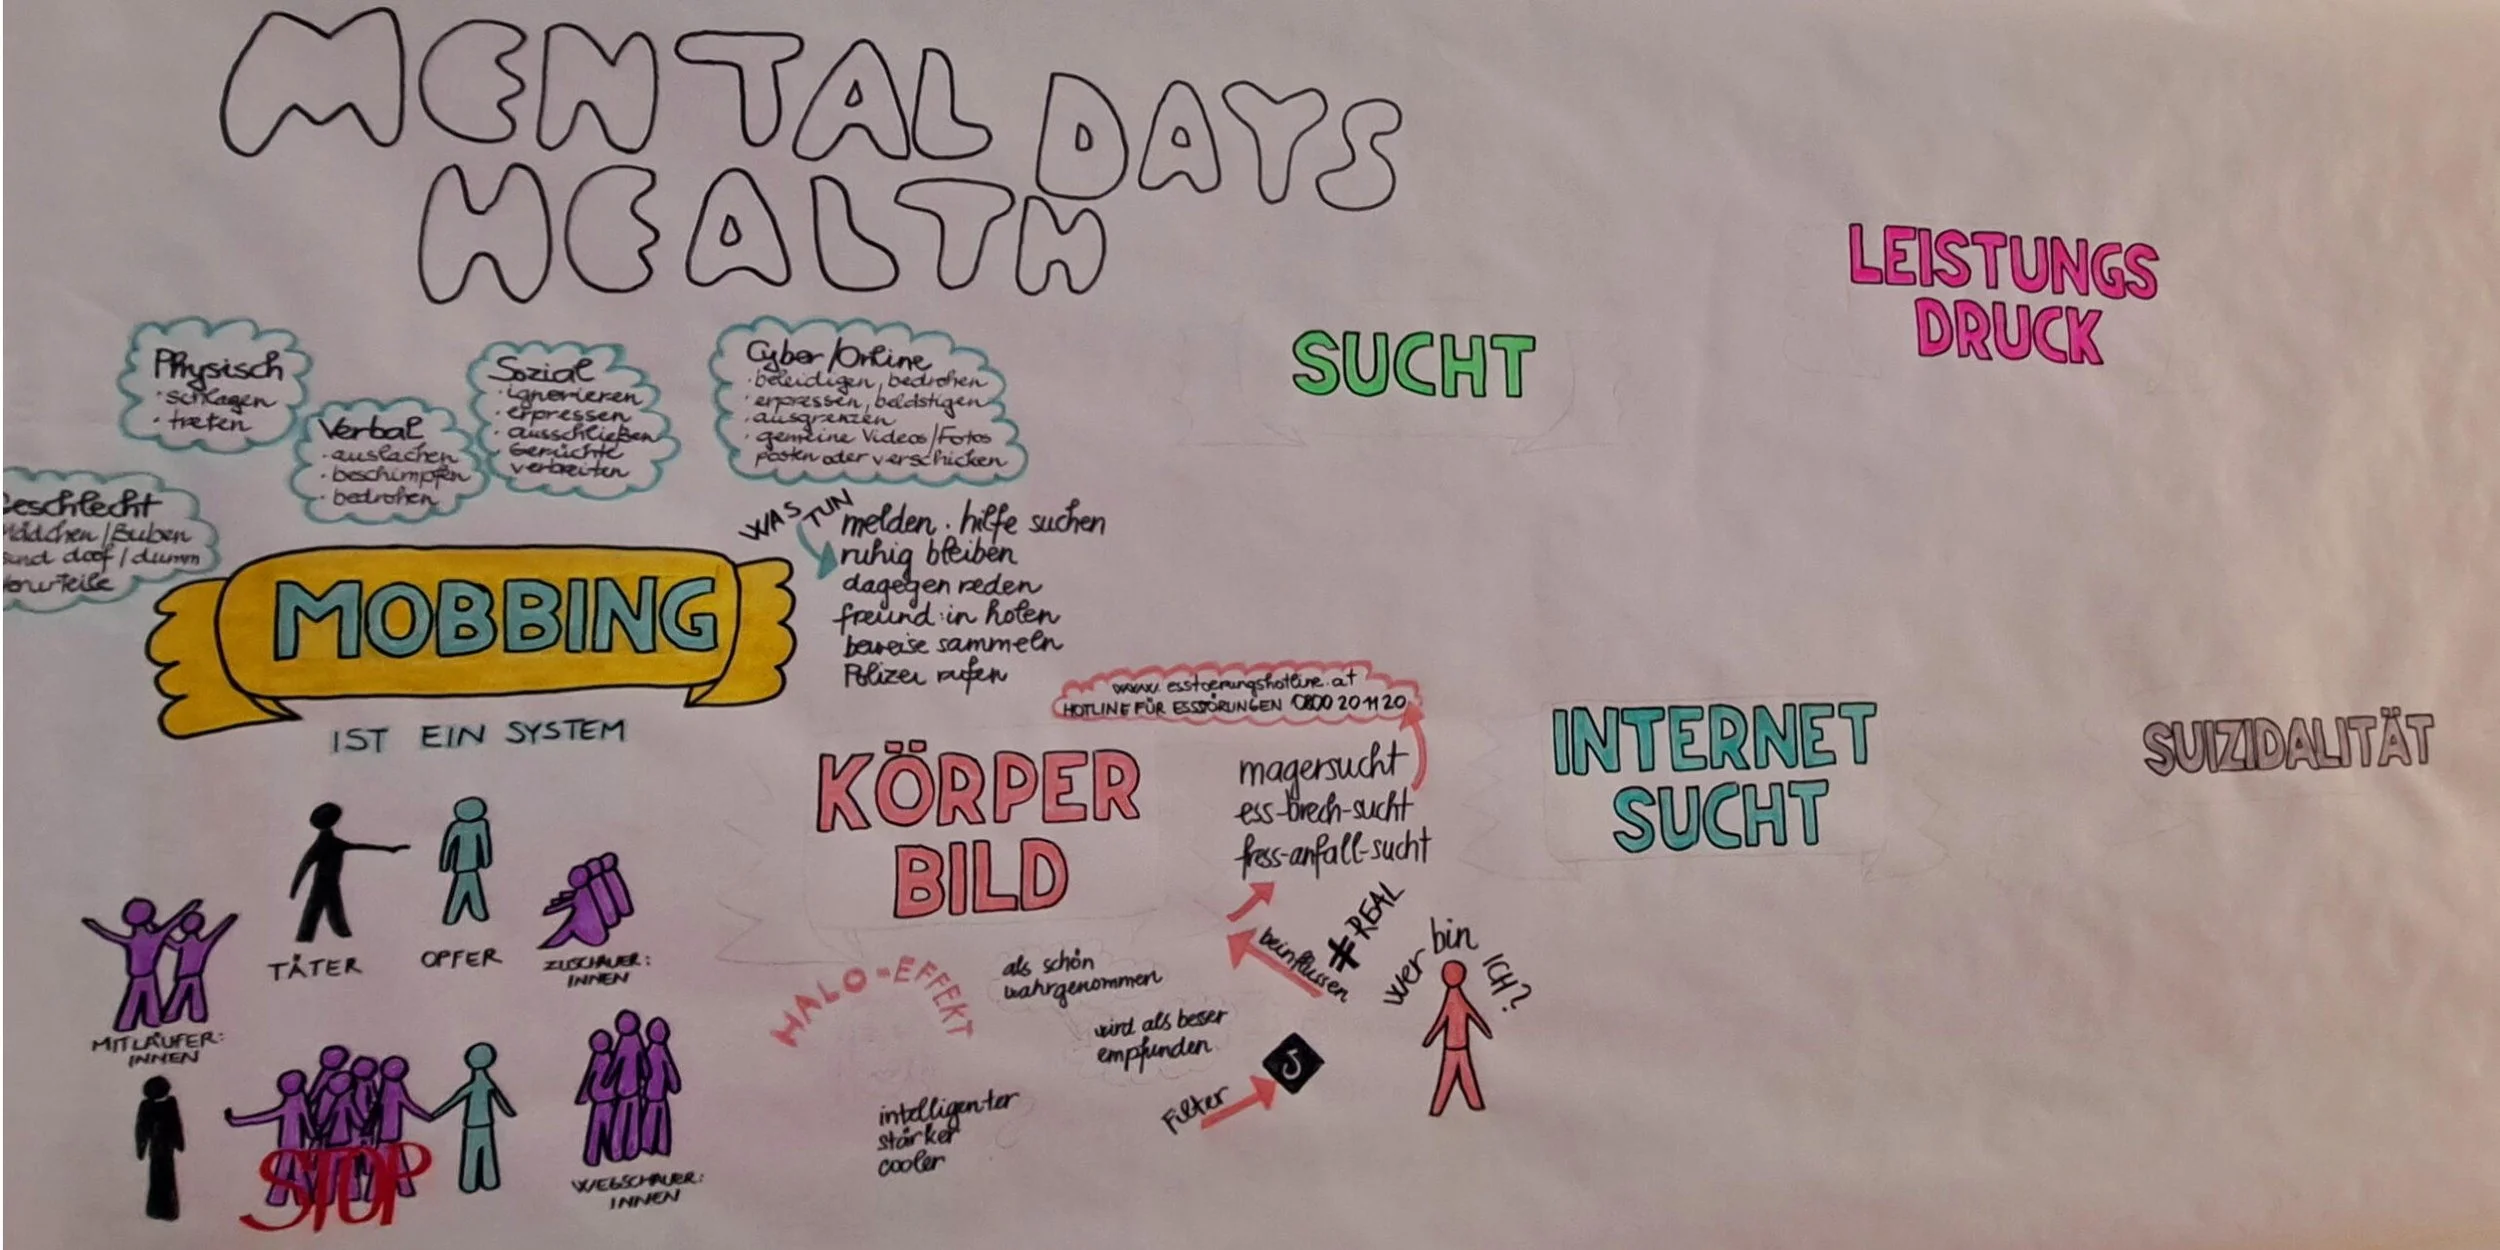 MENTAL
HEALTH
DAYS
Physisch
· schlagen
· treten
Verbal
· auslachen
· beschimpfen
· bedrohen
Sozial
· ignorieren
· erpressen
· ausschließen
· Gerüchte
verbreiten
Cyber/Online
· beleidigen, bedrohen
· erpressen, belästigen
· ausgrenzen
· gemeine Videos/Fotos
posten oder verschicken
eschlecht
ädchen/Buben
sind doof/dumm
Vorurteile
MOBBING
IST EIN SYSTEM
WAS TUN
melden · hilfe suchen
ruhig bleiben
dagegen reden
freund:in holen
beweise sammeln
Polizei rufen
TÄTER
OPFER
ZUSCHAUER:
INNEN
MITLÄUFER:
INNEN
STOP
WEGSCHAUER:
INNEN
KÖRPER
BILD
www.esstoerungshotline.at
HOTLINE FÜR ESSSTÖRUNGEN 0800 20 11 20
magersucht
ess-brech-sucht
fress-anfall-sucht
HALO-EFFEKT
als schön
wahrgenommen
wird als besser
empfunden
intelligenter
stärker
cooler
Filter
beinflussen
#REAL
wer bin ICH?
SUCHT
LEISTUNGS
DRUCK
INTERNET
SUCHT
SUIZIDALITÄT